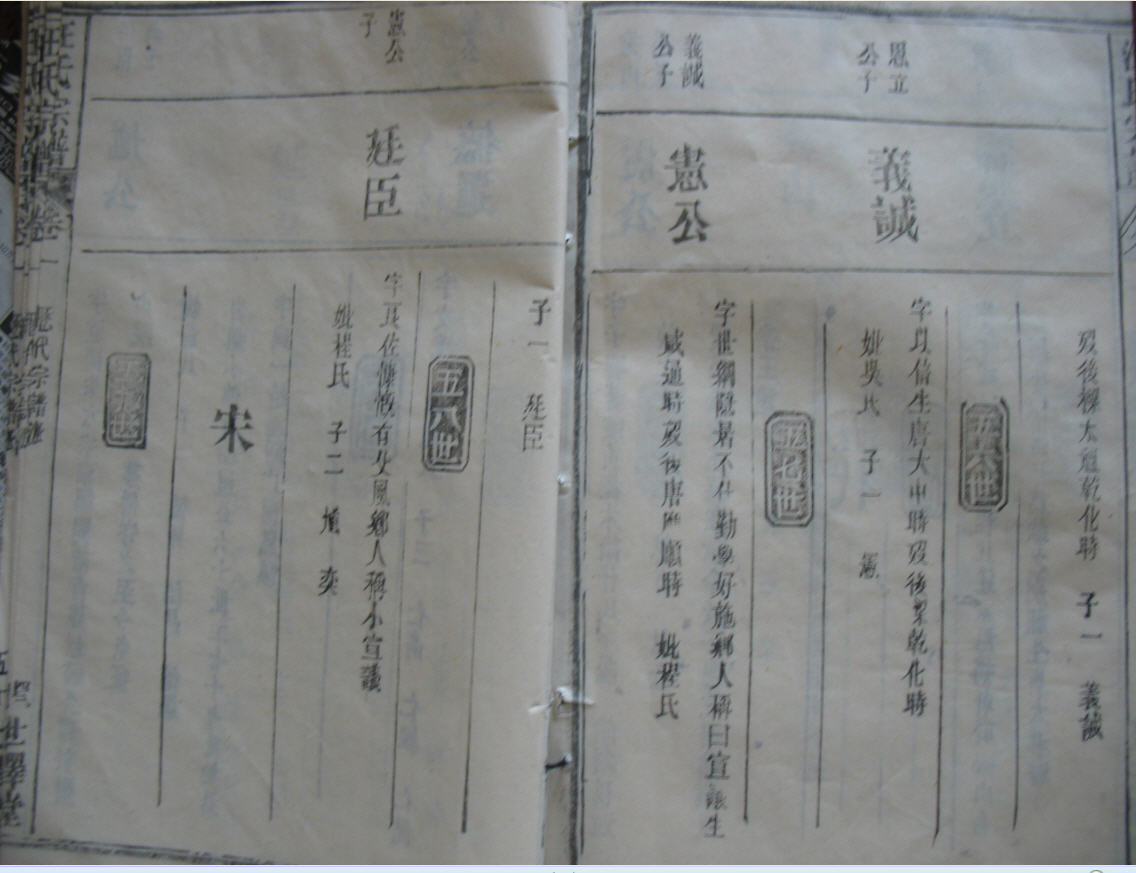 恩立
公子
義誠
歿後梁太祖乾化時 子一 義誠
五六世
字以信生唐大中時歿後梁乾化時
妣吳氏 子一 憲
義誠
公子
憲公
五七世
字世綱隱居不仕勤學好施鄉人稱曰宣議生
咸通時歿後唐應順時 妣程氏
子一 廷臣
五八世
憲公
子
廷臣
字良佐慷慨有父風鄉人稱小宣議
妣程氏 子二 奕
宋
汪氏宗譜 卷一
歷代宗譜